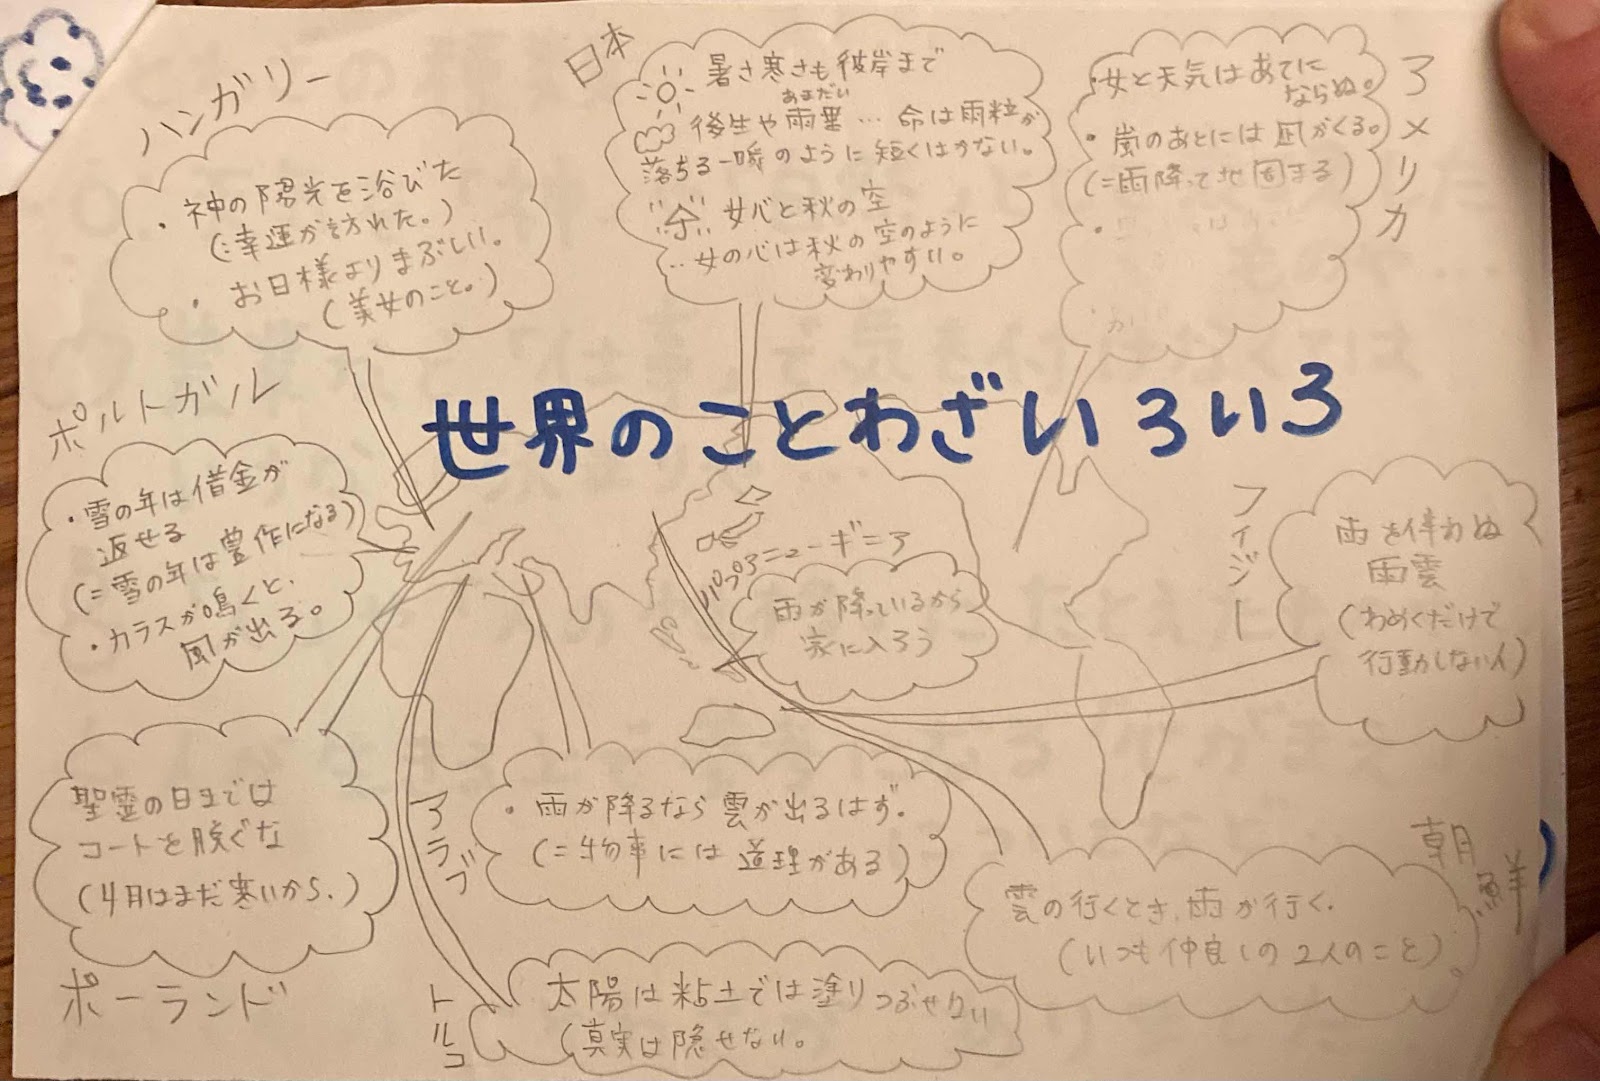 世界のことわざいろいろ
ハンガリー
・神の陽光を浴びた
(∴幸運が訪れた。)
・お日様よりまぶしい。
(美女のこと。)
日本
暑さ寒さも彼岸まで
あまだい
後生や雨垂… 命は雨粒が
落ちる一瞬のように短くはかない。
女心と秋の空
…女の心は秋の空のように
変わりやすい。
アメリカ
・女と天気はあてに
ならぬ。
・嵐のあとには凪がくる。
(=雨降って地固まる)
ポルトガル
・雪の年は借金が
返せる
(=雪の年は豊作になる)
・カラスが鳴くと、
風が出る。
パプアニューギニア
雨が降っているから
家に入ろう
フィジー
雨を伴わぬ
雨雲
(わめくだけで
行動しない人)
聖霊の日までは
コートを脱ぐな
(4月はまだ寒いから、)
ポーランド
アラブ
・雨が降るなら雲が出るはず。
(=物事には道理がある)
朝鮮
雲の行くとき、雨が行く。
(いつも仲良しの2人のこと)。
トルコ
太陽は粘土では塗りつぶせない
(真実は隠せない。